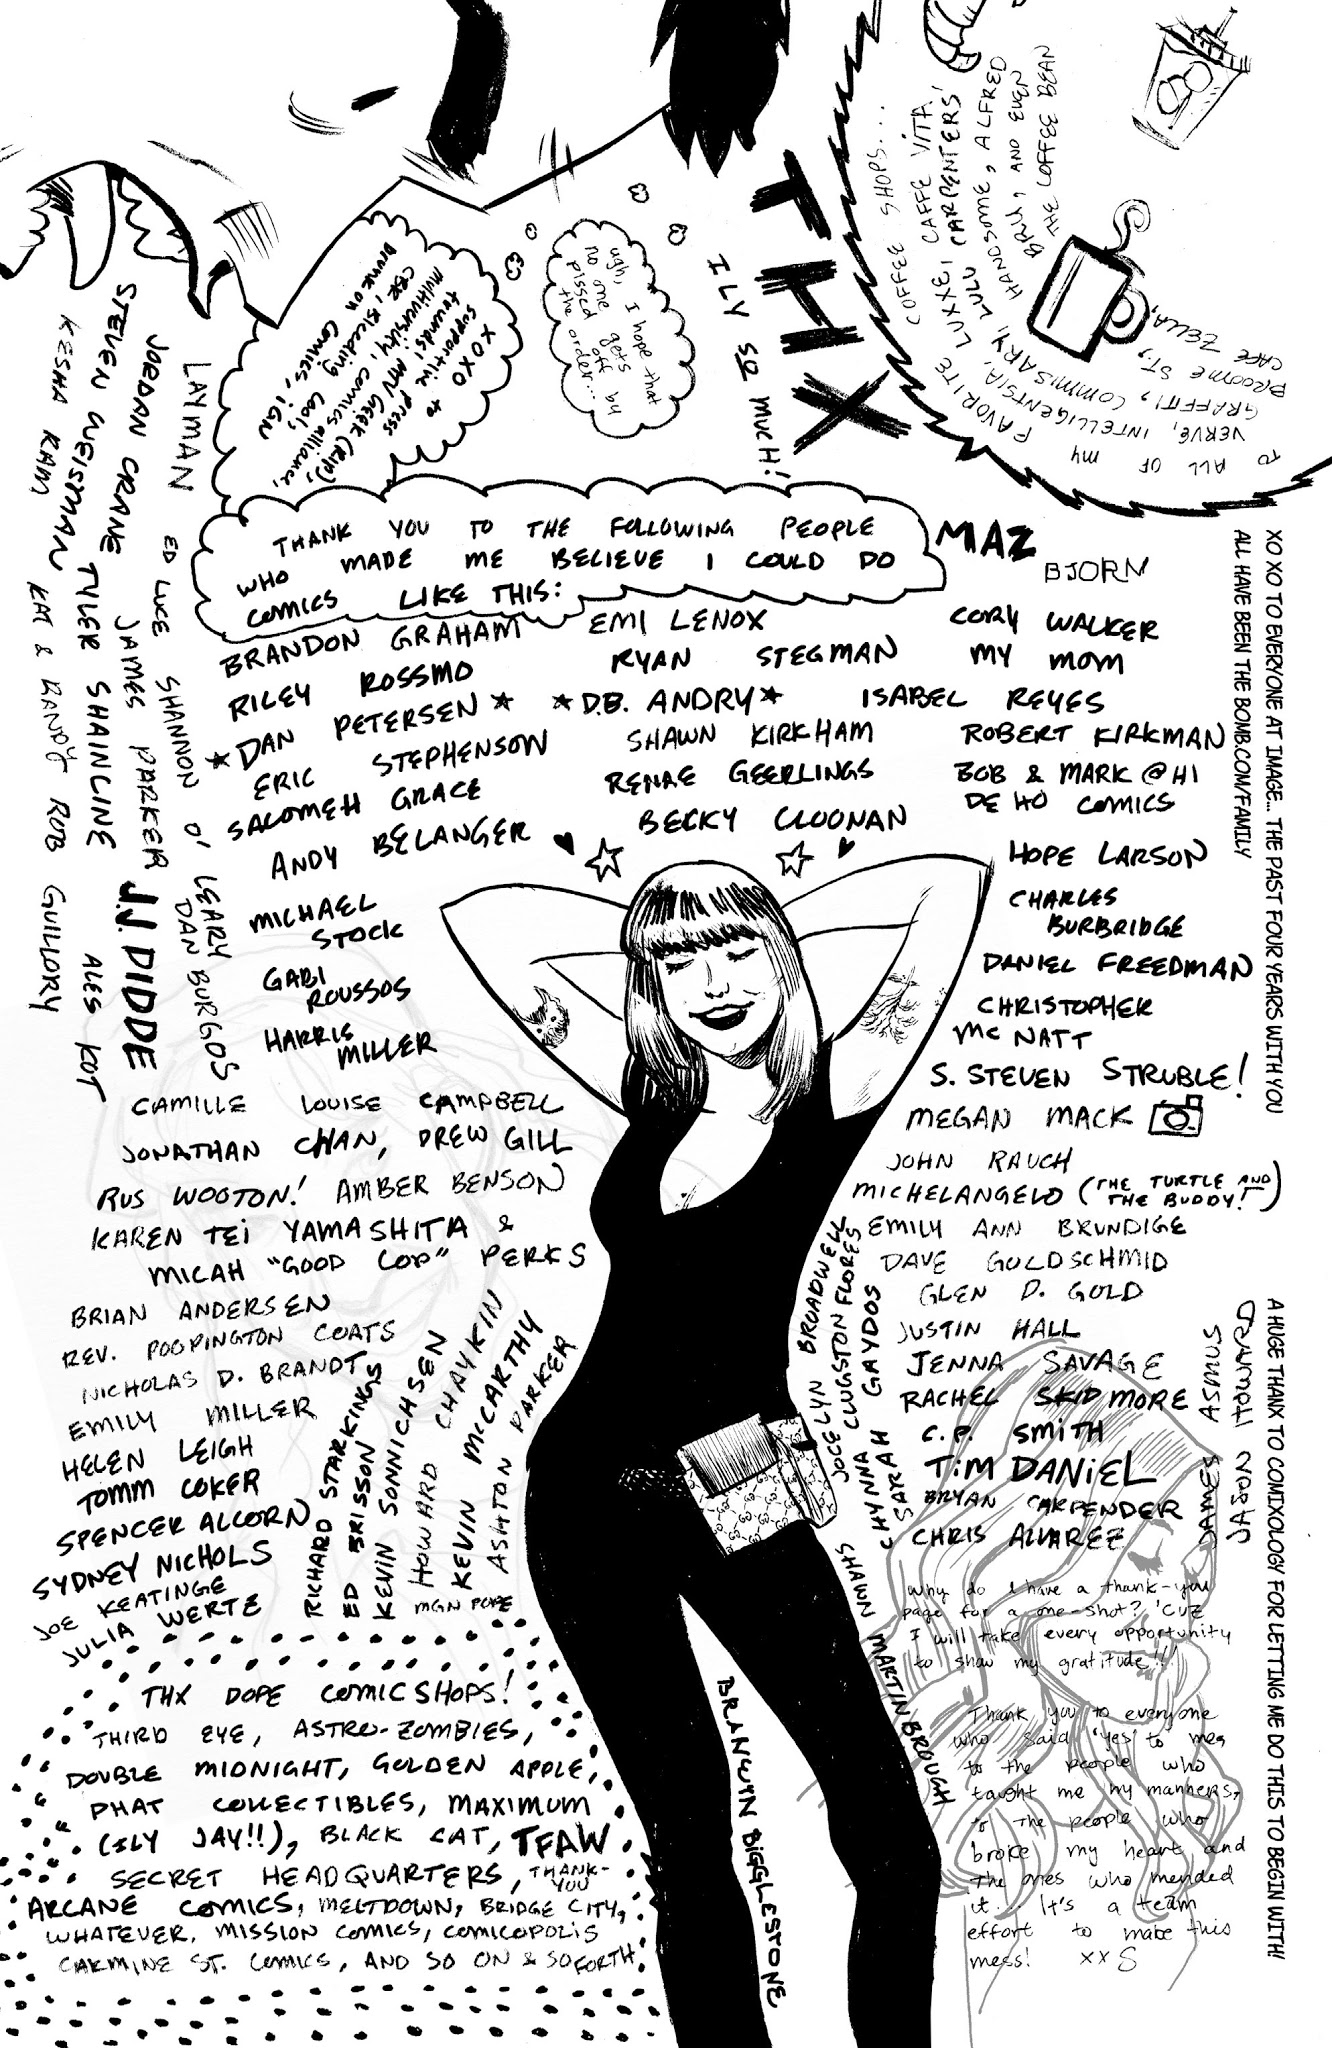 THX
ILY SO MUCH!
TO ALL OF MY
FAVORITE COFFEE SHOPS...
VERVE, INTELLIGENTSIA, LUXXE, CAFFE VITA,
GRAFFITI, COMMISARY, LULU CARPENTERS'
BROOME ST., HANDSOME, ALFRED
CAFE ZELLA, BRU, AND EVEN
THE COFFEE BEAN
ugh, I hope that
no one gets
pissed off by
the order...
XOXO to
supportive press
friends! MTV GEEK (RIP),
MULTIVERSITY, comics alliance,
CBR, Bleeding Cool, IGN
Drunk on Comics,
THANK YOU TO THE FOLLOWING PEOPLE
WHO MADE ME BELIEVE I COULD DO
COMICS LIKE THIS:
MAZ
BJORN
BRANDON GRAHAM
RILEY ROSSMO
DAN PETERSEN
ERIC STEPHENSON
SALOMEH GRACE
ANDY BELANGER
MICHAEL
STOCK
GABI
ROUSSOS
HARRIS
MILLER
EMI LENOX
RYAN STEGMAN
D.B. ANDRY
SHAWN KIRKHAM
RENAE GEERLINGS
BECKY CLOONAN
CORY WALKER
MY MOM
ISABEL REYES
ROBERT KIRKMAN
BOB & MARK @ HI
DE HO COMICS
HOPE LARSON
CHARLES
BURBRIDGE
DANIEL FREEDMAN
CHRISTOPHER
MC NATT
S. STEVEN STRUBLE!
MEGAN MACK
JOHN RAUCH
MICHELANGELO (THE TURTLE AND
THE BUDDY!)
EMILY ANN BRUNDIGE
DAVE GOLDSCHMID
GLEN D. GOLD
JUSTIN HALL
JENNA SAVAGE
RACHEL SKIDMORE
C.P. SMITH
TIM DANIEL
BRYAN CARPENDER
CHRIS ALVAREZ
LAYMAN
ED LUCE
SHANNON O'LEARY
DAN BURGOS
JORDAN CRANE
JAMES PARKER
J.J. DIDDE
STEVEN WEISMAN
TYLER SHAINLINE
ALES KOT
KESHA RAM
KAT & RANDY
ROB GUILLORY
CAMILLE LOUISE CAMPBELL
JONATHAN CHAN, DREW GILL
RUS WOOTON! AMBER BENSON
KAREN TEI YAMASHITA &
MICAH "GOOD COP" PERKS
BRIAN ANDERSEN
REV. POOPINGTON COATS
NICHOLAS D. BRANDT
EMILY MILLER
HELEN LEIGH
TOMM COKER
SPENCER ALCORN
SYDNEY NICHOLS
JOE KEATINGE
JULIA WERTZ
RICHARD STARKINGS
ED BRISSON
KEVIN SONNICHSEN
HOWARD CHAYKIN
MGN POPE
KEVIN MCCARTHY
ASHTON PARKER
JOCELYN BROADWELL
CHYNNA CLUGSTON FLORES
SARAH GAYDOS
SHAWN MARTINBROUGH
BRANWYN BIGGLESTONE
JAMES ASMUS
JASON
THX DOPE COMIC SHOPS!
THIRD EYE, ASTRO-ZOMBIES,
DOUBLE MIDNIGHT, GOLDEN APPLE,
PHAT COLLECTIBLES, MAXIMUM
(ILY JAY!!), BLACK CAT, TFAW
SECRET HEADQUARTERS, THANK-
YOU
ARCANE COMICS, MELTDOWN, BRIDGE CITY,
WHATEVER, MISSION COMICS, COMICOPOLIS
CARMINE ST. COMICS, AND SO ON & SO FORTH.
Why do I have a thank-you
page for a one-shot? 'CUZ
I will take every opportunity
to show my gratitude!!
Thank you to everyone
who said "yes" to me,
to the people who
taught me my manners,
to the people who
broke my heart and
the ones who mended
it... It's a team
effort to make this
mess! xx S
XO XO TO EVERYONE AT IMAGE... THE PAST FOUR YEARS WITH YOU
ALL HAVE BEEN THE BOMB.COM/FAMILY
A HUGE THANX TO COMIXOLOGY FOR LETTING ME DO THIS TO BEGIN WITH!